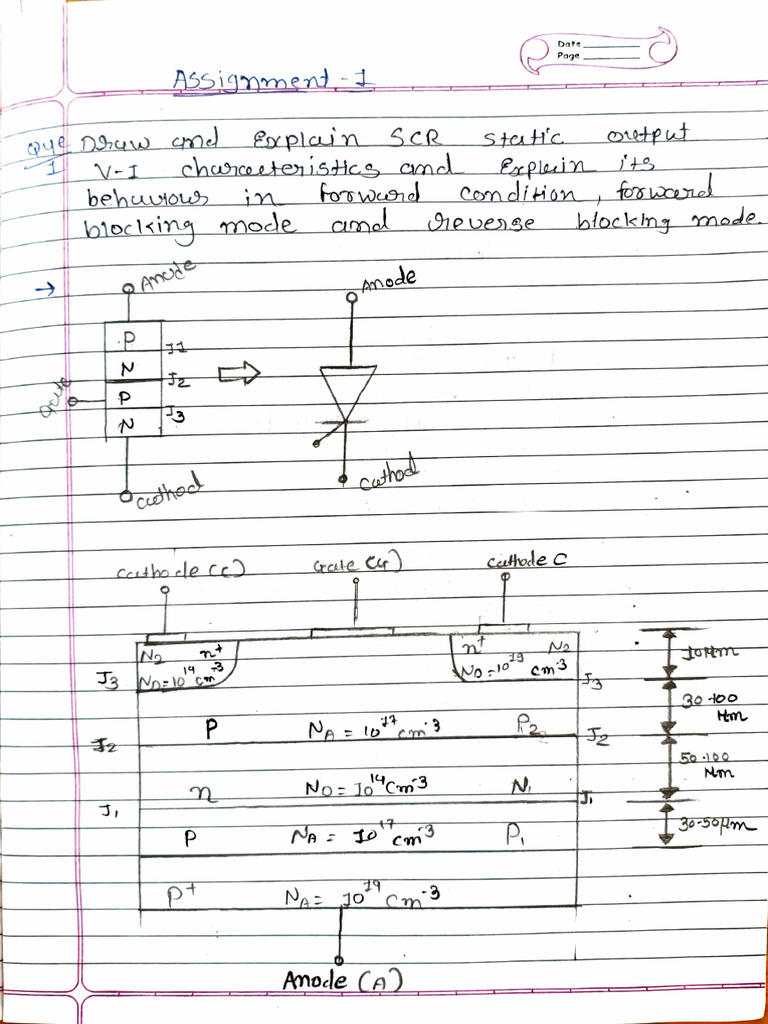 Date
Page
Assignment - I
Que Draw and Explain SCR static output
1 V-I characteristics and Explain its
behaviour in forward condition, forward
blocking mode and reverse blocking mode.
→ Anode
P J1
N J2
Gate P J3
N
Cathod
⇨
Anode
Cathod
Cathode (C) Gate (G) Cathode C
N2 n+
J3 ND=10^14 cm^-3
n+ N2
ND=10^19 cm^-3 J3
10μm
J2 P NA = 10^17 cm^-3 P2 J2
30-100
μm
J1 n ND=10^14 cm^-3 N1 J1
50-100
μm
P NA = 10^17 cm^-3 P1
30-50μm
P+ NA = 10^19 cm^-3
Anode (A)